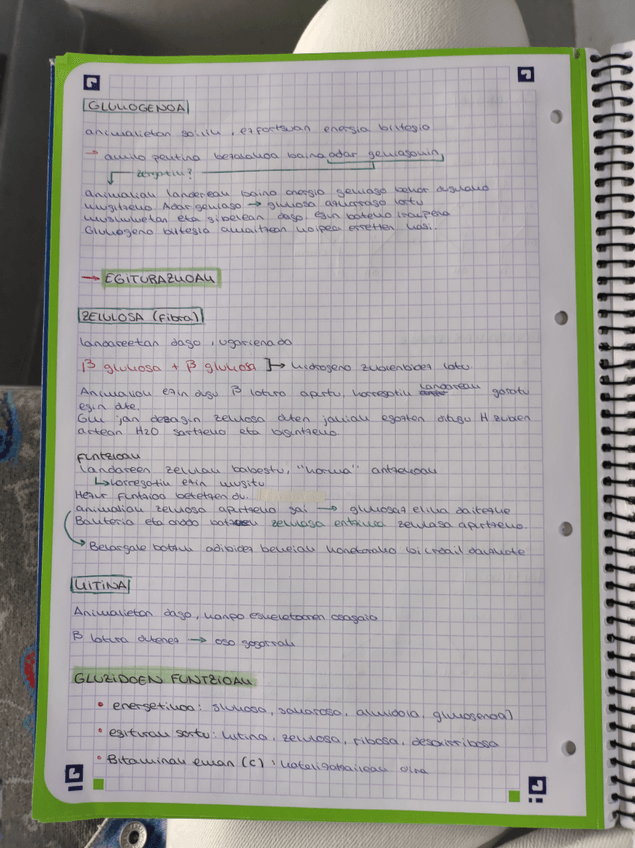 GLUKOGENOA
animalietan soilik, esportzuan energia biltegia
→ amilo pektina bezalakoa baina adar gehiagokin,
zergatik?
animaliak landareak baino energia gehiago behar dugulako
mugitzeko Adar gehiago → glukosa azkarrago lortu
muskuluetan eta gibelean dago, egin boteko iraupena
Glukogeno biltegia amaitzean koipea erretzen hasi.
→ EGITURAZKOAK
ZELULOSA (Fibra)
landareetan dago, ugariena da
β glukosa + β glukosa ]→ hidrogeno zubien bidez lotu.
Animaliak ezin dugu β lotura apurtu, horregatik landareak garatu
egin dute.
Guk jan dezagun zelulosa duten jakiak egosten ditugu H zubien
artean H2O sartzeko eta bigintzeko
FUNTZIOAK
landareen zelulak babestu, "horma" antzekoak
↳ horregatik ezin mugitu
Hezur funtzioa betetzen du.
animaliak zelulosa apurtzeko gai → glukosaz elika daitezke
Bakteria eta onddo batzuek zelulosa entzima zelulosa apurtzeko.
Belarjale batzuk adibidez behiak honetarako bi urdail dauzkate
KITINA
Animalietan dago, kanpo eskeletoaren osagaia
β lotura dutenez → oso gogorrak
GLUZIDOEN FUNTZIOAK
• energetikoa: glukosa, sakarosa, almidoia, glukogenoa)
• egiturak sortu: kitina, zelulosa, ribosa, desoxirribosa
• Bitaminak eman (C): katalizatzaileak dira